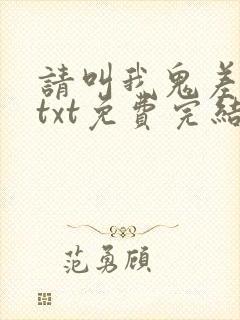 請叫我鬼差
txt免費完結
范勇頎